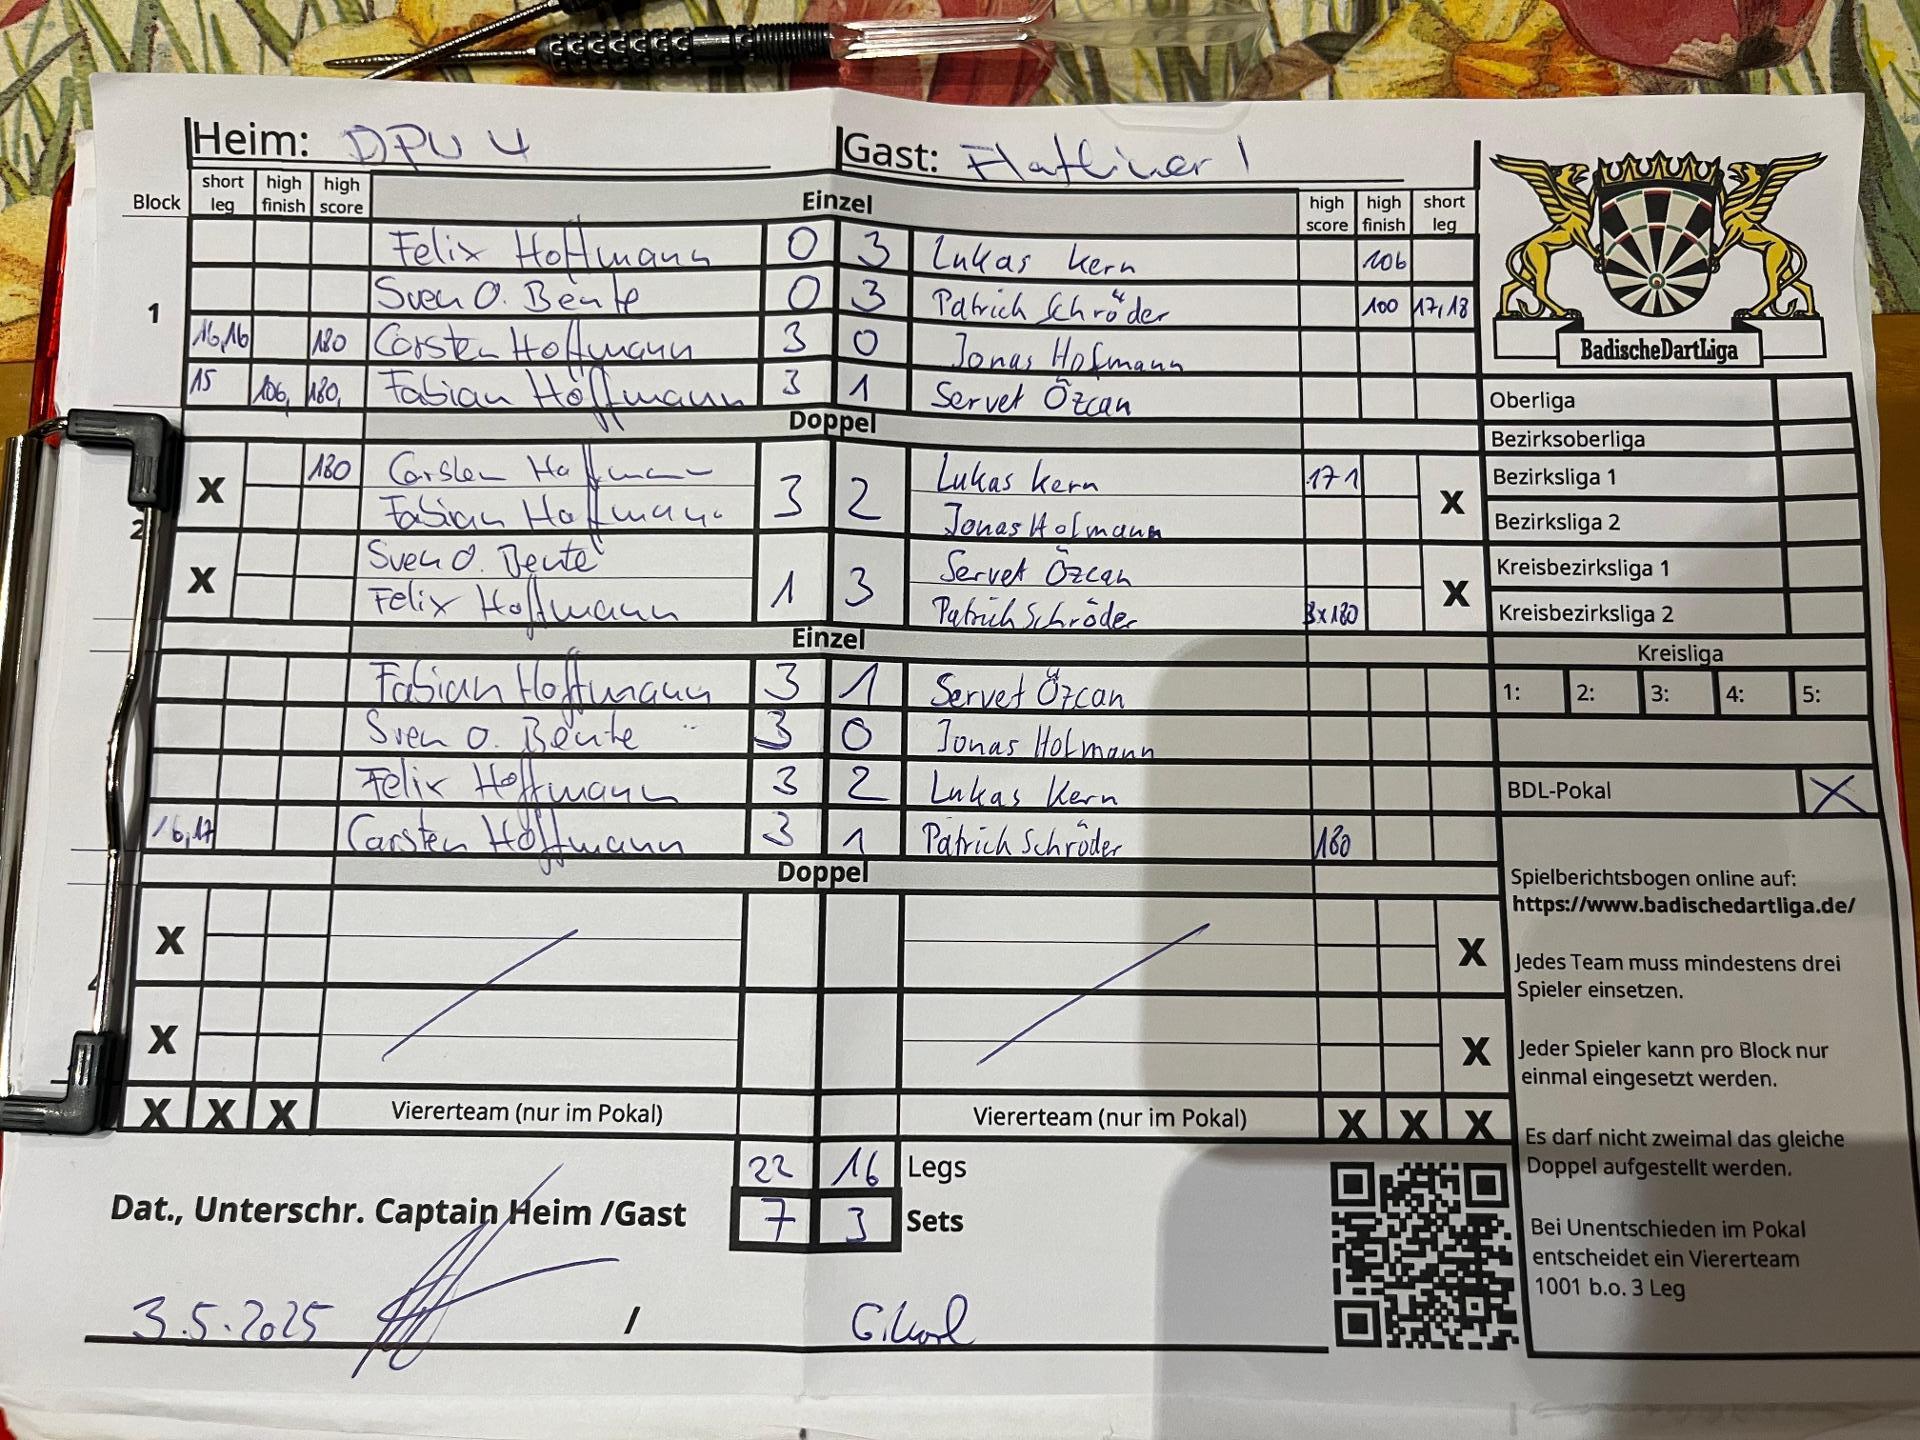 Heim: DPU 4 Gast: Flatliner 1
Block short leg high finish high score Einzel high score high finish short leg
Felix Hoffmann 0 3 Lukas Kern 106
1
Sven O. Bente 0 3 Patrick Schröder 100 17,18
16,16 180 Carsten Hoffmann 3 0 Jonas Hofmann
15 106, 180, Fabian Hoffmann 3 1 Servet Özcan
BadischeDartLiga
Doppel
2
X 180 Carsten Hoffmann 3 2 Lukas Kern 171 X
Fabian Hoffmann Jonas Hofmann
X Sven O. Bente 1 3 Servet Özcan X
Felix Hoffmann Patrick Schröder 3x180
Einzel
Fabian Hoffmann 3 1 Servet Özcan
Sven O. Bente 3 0 Jonas Hofmann
Felix Hoffmann 3 2 Lukas Kern
16,17 Carsten Hoffmann 3 1 Patrick Schröder 180
Doppel
X X
X X
X X X Viererteam (nur im Pokal) Viererteam (nur im Pokal) X X X
22 16 Legs
7 3 Sets
Dat., Unterschr. Captain Heim /Gast
3.5.2025 /
Oberliga
Bezirksoberliga
Bezirksliga 1
Bezirksliga 2
Kreisbezirksliga 1
Kreisbezirksliga 2
Kreisliga
1: 2: 3: 4: 5:
BDL-Pokal X
Spielberichtsbogen online auf:
https://www.badischedartliga.de/
Jedes Team muss mindestens drei
Spieler einsetzen.
Jeder Spieler kann pro Block nur
einmal eingesetzt werden.
Es darf nicht zweimal das gleiche
Doppel aufgestellt werden.
Bei Unentschieden im Pokal
entscheidet ein Viererteam
1001 b.o. 3 Leg